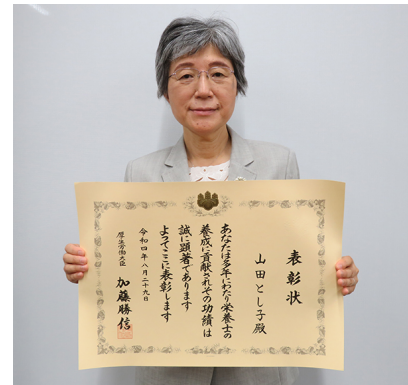 表彰状
山田とし子殿
あなたは多年にわたり栄養士の
養成に貢献されその功績は
誠に顕著であります
よつてここに表彰します
令和四年八月二十九日
厚生労働大臣
加藤勝信